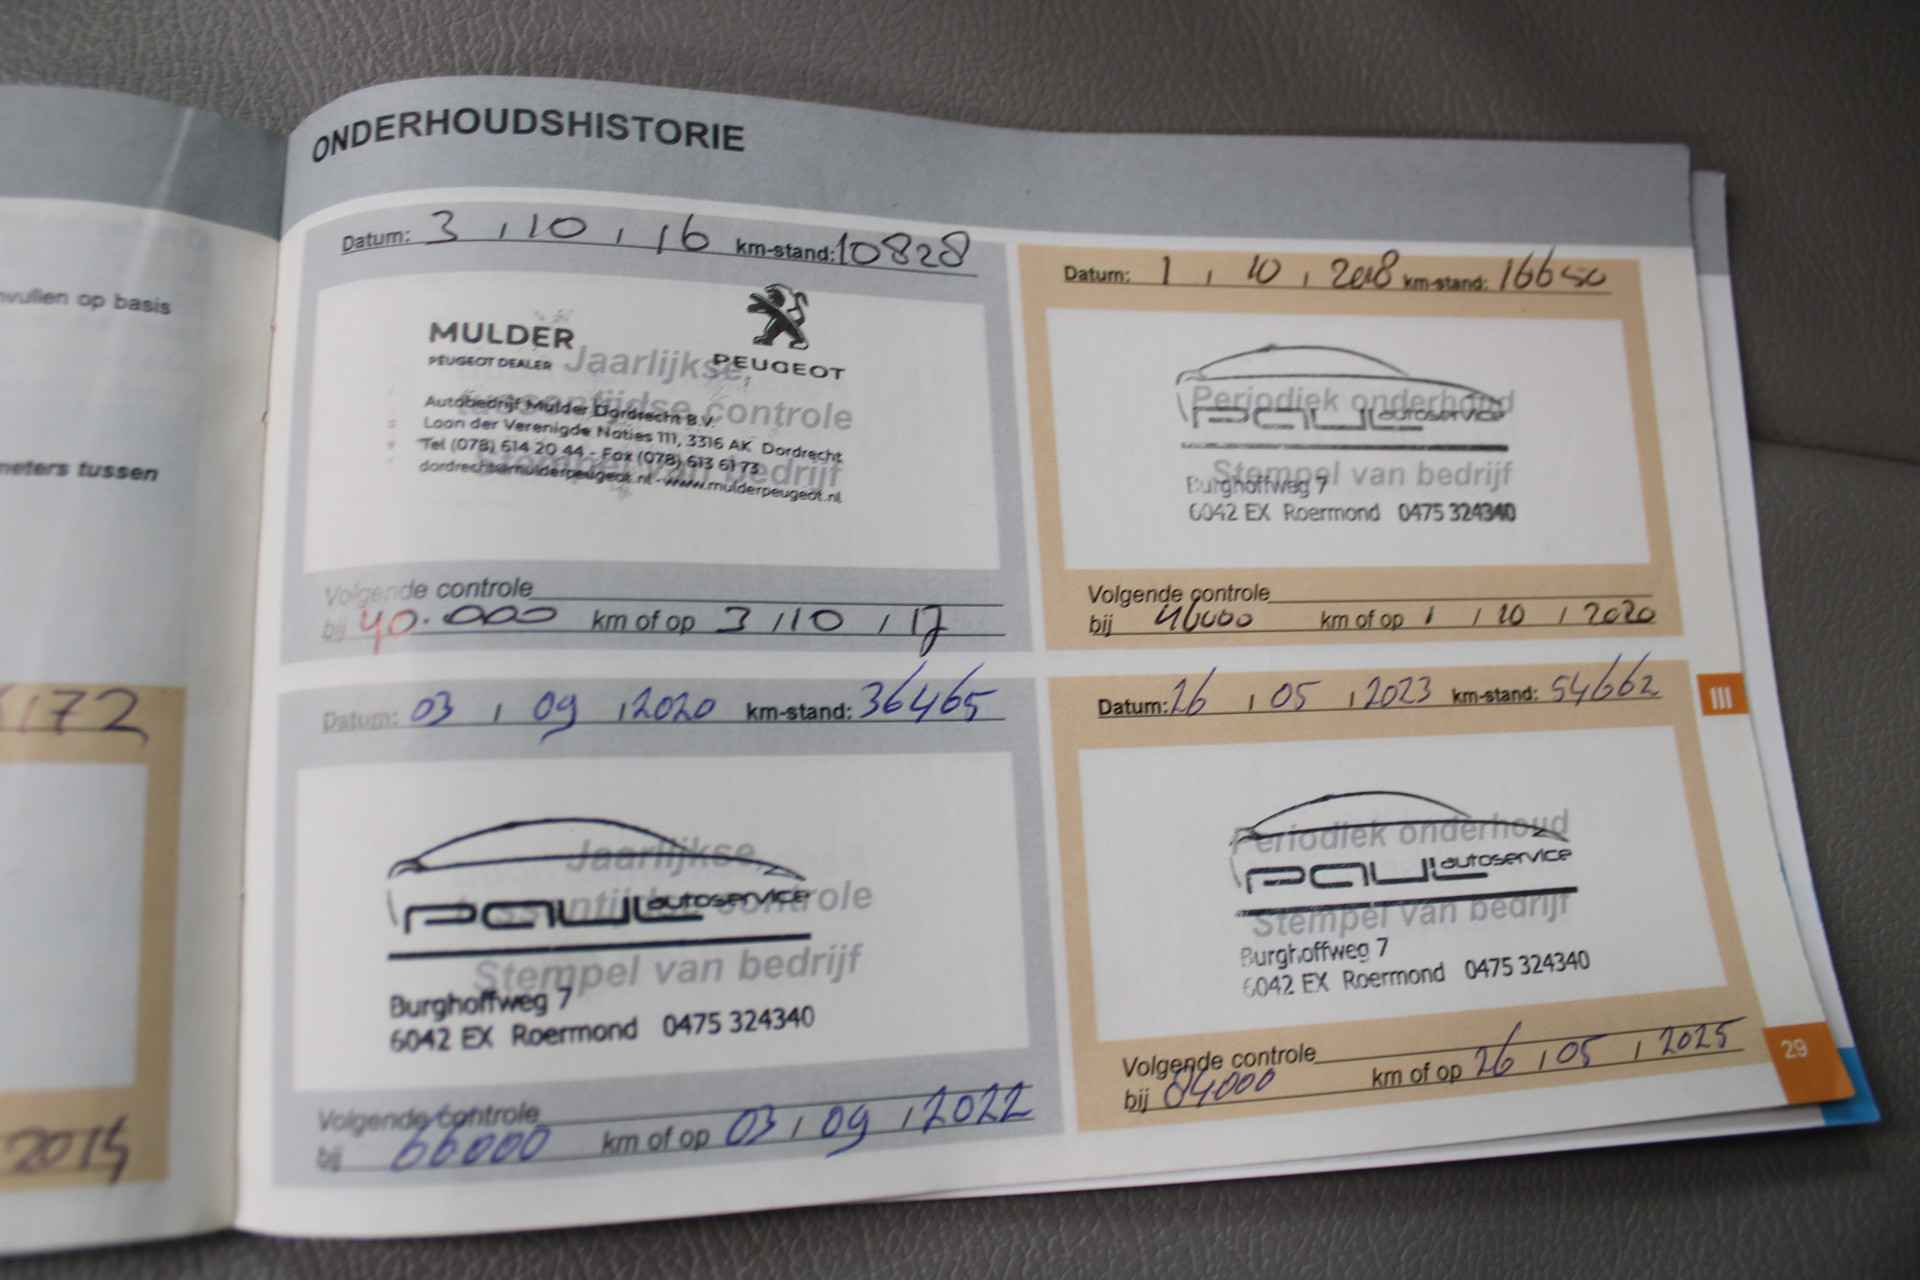 nvullen op basis
meters tussen
172
2015
ONDERHOUDSHISTORIE
Datum: 3 / 10 / 16 km-stand: 10828
MULDER
PEUGEOT DEALER
PEUGEOT
Jaarlijkse
controle
Autobedrijf Mulder Dordrecht B.V.
Laan der Verenigde Naties 111, 3316 AK Dordrecht
Tel (078) 614 20 44 - Fax (078) 613 61 73
Stempel van bedrijf
dordrecht@mulderpeugeot.nl - www.mulderpeugeot.nl
Volgende controle
bij 40.000 km of op 3 / 10 / 17
Datum: 1 / 10 / 2018 km-stand: 16650
Periodiek onderhoud
PAUL autoservice
Stempel van bedrijf
Burghoffweg 7
6042 EX Roermond 0475 324340
Volgende controle
bij 46000 km of op 1 / 10 / 2020
Datum: 03 / 09 / 2020 km-stand: 36465
Jaarlijkse
tussentijdse controle
PAUL autoservice
Stempel van bedrijf
Burghoffweg 7
6042 EX Roermond 0475 324340
Volgende controle
bij 66000 km of op 03 / 09 / 2022
Datum: 26 / 05 / 2023 km-stand: 54662
Periodiek onderhoud
PAUL autoservice
Stempel van bedrijf
Burghoffweg 7
6042 EX Roermond 0475 324340
Volgende controle
bij 84000 km of op 26 / 05 / 2025
III
29